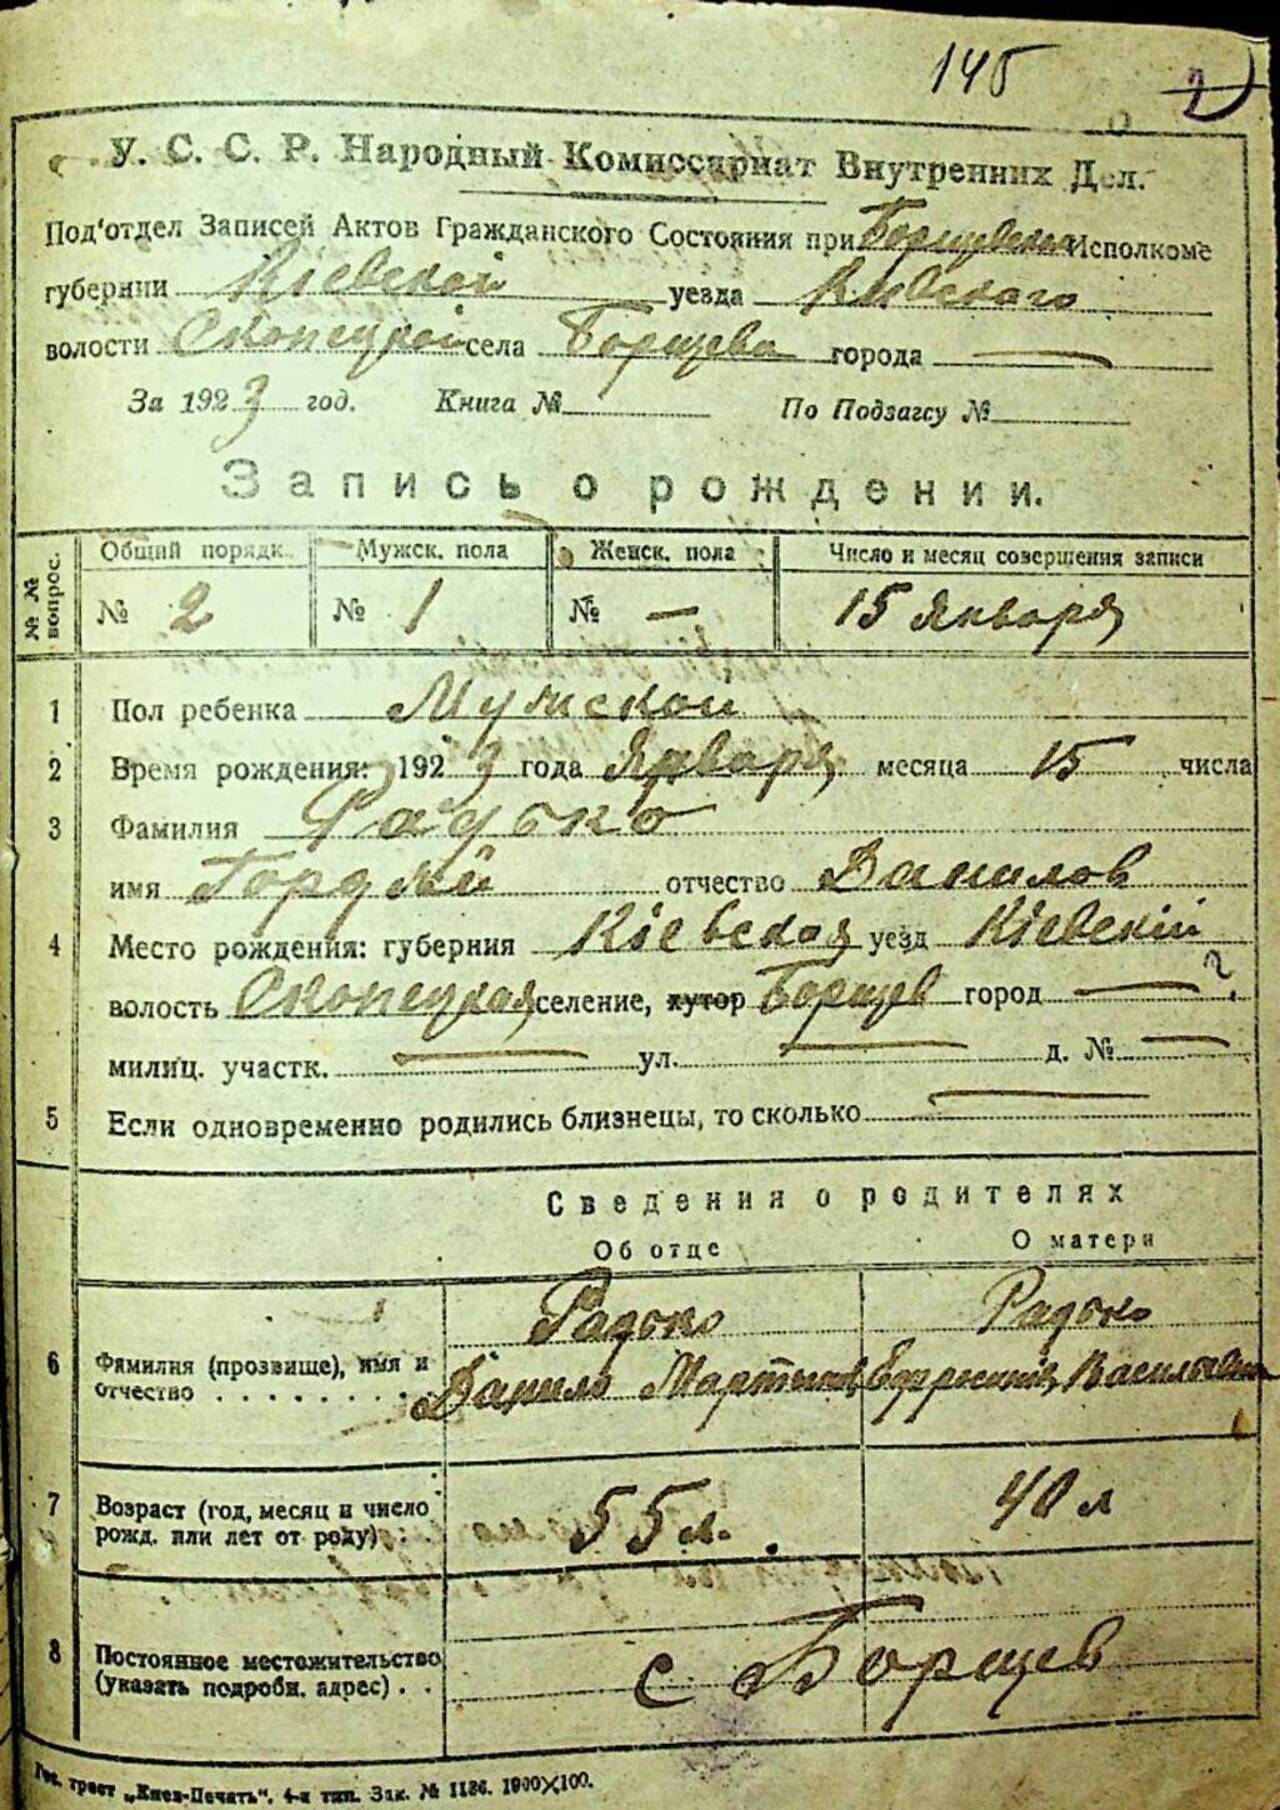 145 2
У. С. С. Р. Народный Комиссариат Внутренних Дел.
Под'отдел Записей Актов Гражданского Состояния при Борщевском Исполкоме
губернии Кіевской уезда Киевского
волости Скопецкой села Борщева города —
За 1923 год. Книга № По Подзагсу №
Запись о рождении.
№ № вопрос. Общий порядк. Мужск. пола Женск. пола Число и месяц совершения записи
№ 2 № 1 № — 15 Января
1 Пол ребенка Мужской
2 Время рождения: 1923 года Января месяца 15 числа
3 Фамилия Радько
имя Гордий отчество Данилов
4 Место рождения: губерния Кіевская уезд Кіевскій
волость Скопецкая селение, хутор Борщев город — ?
милиц. участк. — ул. — д. № —
5 Если одновременно родились близнецы, то сколько —
Сведения о родителях
Об отце О матери
Радько Радько
6 Фамилия (прозвище), имя и отчество Данило Мартинов Васильевна
7 Возраст (год, месяц и число рожд. или лет от роду) 55 л. 40 л
8 Постоянное местожительство (указать подробн. адрес) с Борщев
Гос. трест „Киев-Печать". 4-я тип. Зак. № 1136. 1900×100.